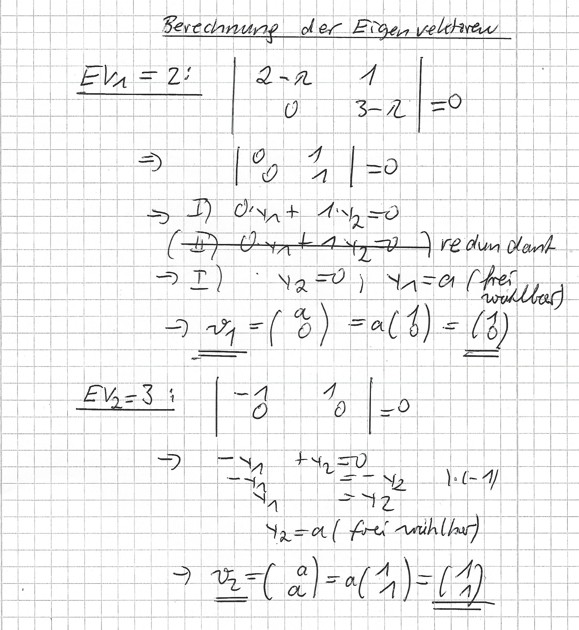 Berechnung der Eigenvektoren
EV₁ = 2: | 2-λ 1 |
| 0 3-λ | = 0
⇒ | 0 1 |
| 0 1 | = 0
⇒ I) 0·y₁ + 1·y₂ = 0
(II) 0·y₁ + 1·y₂ = 0) redundant
→ I) · y₂ = 0 ; y₁ = a (frei
wählbar)
→ v₁ = (a 0) = a(1 0) = (1 0)
EV₂ = 3: | -1 1 |
| 0 0 | = 0
→ -y₁ + y₂ = 0
-y₁ = -y₂ |·(-1)
y₁ = y₂
y₂ = a (frei wählbar)
→ v₂ = (a a) = a(1 1) = (1 1)